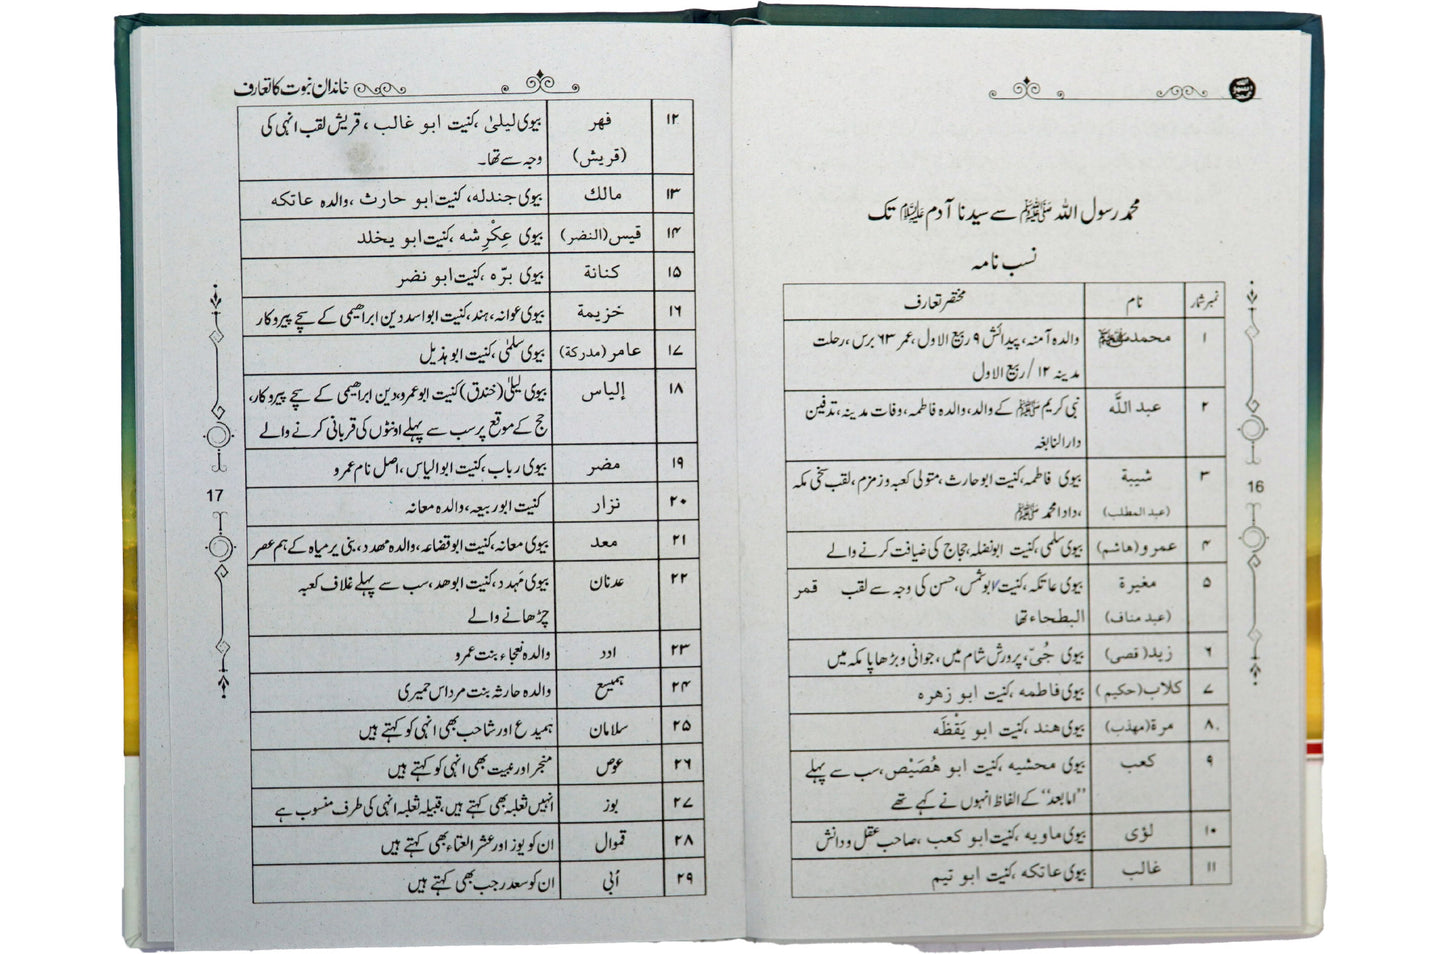 محمد رسول اللہ ﷺ سے سیدنا آدم علیہ السلام تک
نسب نامہ
نمبر شمار نام مختصر تعارف
۱ محمد ﷺ والدہ آمنہ، پیدائش ۹ ربیع الاول، عمر ۶۳ برس، رحلت
مدینہ ۱۲/ ربیع الاول
۲ عبد اللّٰہ نبی کریم ﷺ کے والد، والدہ فاطمہ، وفات مدینہ، تدفین
دارالنابغہ
۳ شیبة بیوی فاطمہ، کنیت ابو حارث، متولی کعبہ و زمزم، لقب سخی مکہ
(عبد المطلب) ، دادا محمد ﷺ
۴ عمرو (ھاشم) بیوی سلمی، کنیت ابو نضلہ، حجاج کی ضیافت کرنے والے
۵ مغیرة بیوی عاتکہ، کنیت ابو شمس، حسن کی وجہ سے لقب قمر
(عبد مناف) البطحاء تھا
۶ زید (قصی) بیوی حُبیّ، پرورش شام میں، جوانی و بڑھاپا مکہ میں
۷ کلاب (حکیم) بیوی فاطمہ، کنیت ابو زھرہ
۸ مرة (مھذب) بیوی ھند، کنیت ابو یَقْظَه
۹ کعب بیوی محشیہ، کنیت ابو ھُصَیْص، سب سے پہلے
”اما بعد“ کے الفاظ انہوں نے کہے تھے
۱۰ لؤی بیوی ماویہ، کنیت ابو کعب، صاحب عقل و دانش
۱۱ غالب بیوی عاتکہ، کنیت ابو تیم
16
خاندان نبوت کا تعارف
۱۲ فھر بیوی لیلیٰ، کنیت ابو غالب، قریش لقب انہی کی
(قریش) وجہ سے تھا۔
۱۳ مالك بیوی جندله، کنیت ابو حارث، والدہ عاتکہ
۱۴ قیس (النضر) بیوی عِکْرِشه، کنیت ابو یخلد
۱۵ کنانة بیوی برّہ، کنیت ابو نضر
۱۶ خزیمة بیوی عوانہ، ہند، کنیت ابو اسد دین ابراھیمی کے سچے پیروکار
۱۷ عامر (مدرکة) بیوی سلمٰی، کنیت ابو ہذیل
۱۸ إلیاس بیوی لیلیٰ (خندق) کنیت ابو عمرو، دین ابراھیمی کے سچے پیروکار،
حج کے موقع پر سب سے پہلے اونٹوں کی قربانی کرنے والے
۱۹ مضر بیوی رباب، کنیت ابو الیاس، اصل نام عمرو
۲۰ نزار کنیت ابو ربیعہ، والدہ معانہ
۲۱ معد بیوی معانہ، کنیت ابو قضاعہ، والدہ مھدد، نبی یرمیاہ کے ہم عصر
۲۲ عدنان بیوی مَہدد، کنیت ابو ھد، سب سے پہلے غلاف کعبہ
چڑھانے والے
۲۳ ادد والدہ نعجاء بنت عمرو
۲۴ ہمیسع والدہ حارثہ بنت مرداس حمیری
۲۵ سلامان ہمیدع اور شاحب بھی انہی کو کہتے ہیں
۲۶ عوص منجر اور عبیت بھی انہی کو کہتے ہیں
۲۷ بوز انہیں ثعلبہ بھی کہتے ہیں، قبیلہ ثعلبہ انہی کی طرف منسوب ہے
۲۸ قموال ان کو یوز اور عشر العتاء بھی کہتے ہیں
۲۹ اُبی ان کو سعد رجب بھی کہتے ہیں
17